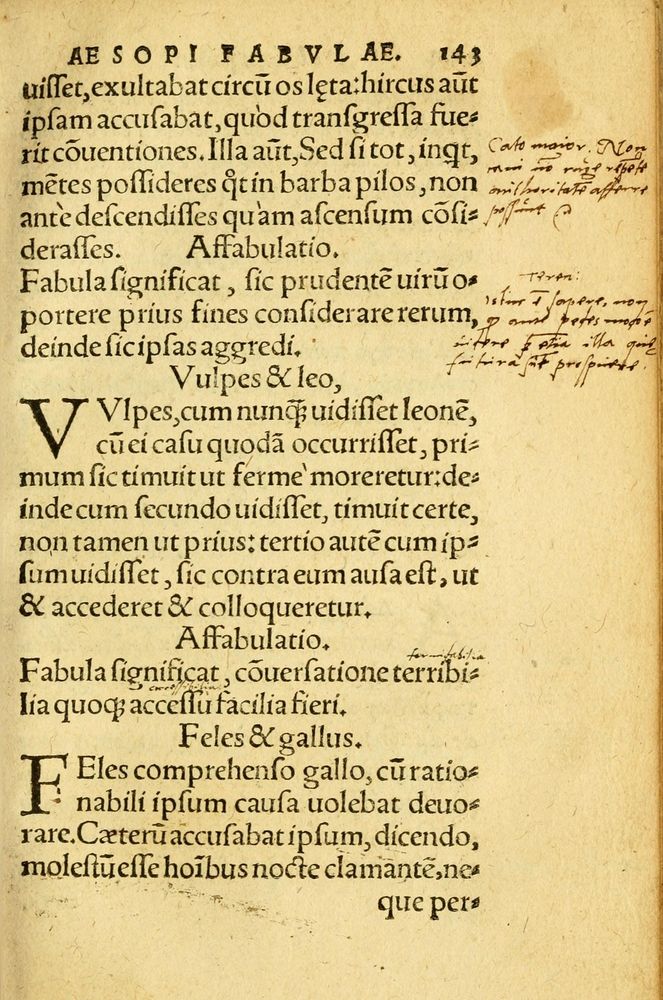 AESOPI FABVLAE. 143
uiſſet, exultabat circũ os lęta: hircus aũt
ipſam accuſabat, quòd transgreſſa fue-
rit cõuentiones. Illa aũt, Sed ſi tot, inqt,
mẽtes poſſideres q̃t in barba pilos, non
antè deſcendiſſes quàm aſcenſum cõſi-
deraſſes. Affabulatio.
Fabula ſignificat, ſic prudentẽ uirũ o-
portere prius fines conſiderare rerum,
deinde ſic ipſas aggredi.
Vulpes & leo,
VVlpes, cum nunq̃ uidiſſet leonẽ,
cũ ei caſu quodã occurriſſet, pri-
mum ſic timuit ut fermè moreretur: de-
inde cum ſecundo uidiſſet, timuit certe,
non tamen ut prius: tertio autẽ cum ip-
ſum uidiſſet, ſic contra eum auſa eſt, ut
& accederet & colloqueretur.
Affabulatio.
Fabula ſignificat, cõuerſatione terribi-
lia quoq; acceſſu facilia fieri.
Feles & gallus.
FEles comprehenſo gallo, cũ ratio-
nabili ipſum cauſa uolebat deuo-
rare. Cæterũ accuſabat ipſum, dicendo,
moleſtũ eſſe hoĩbus nocte clamantẽ, ne-
que per-
Cato maior. Non
afferre
Teren:
ſapere, non
illa